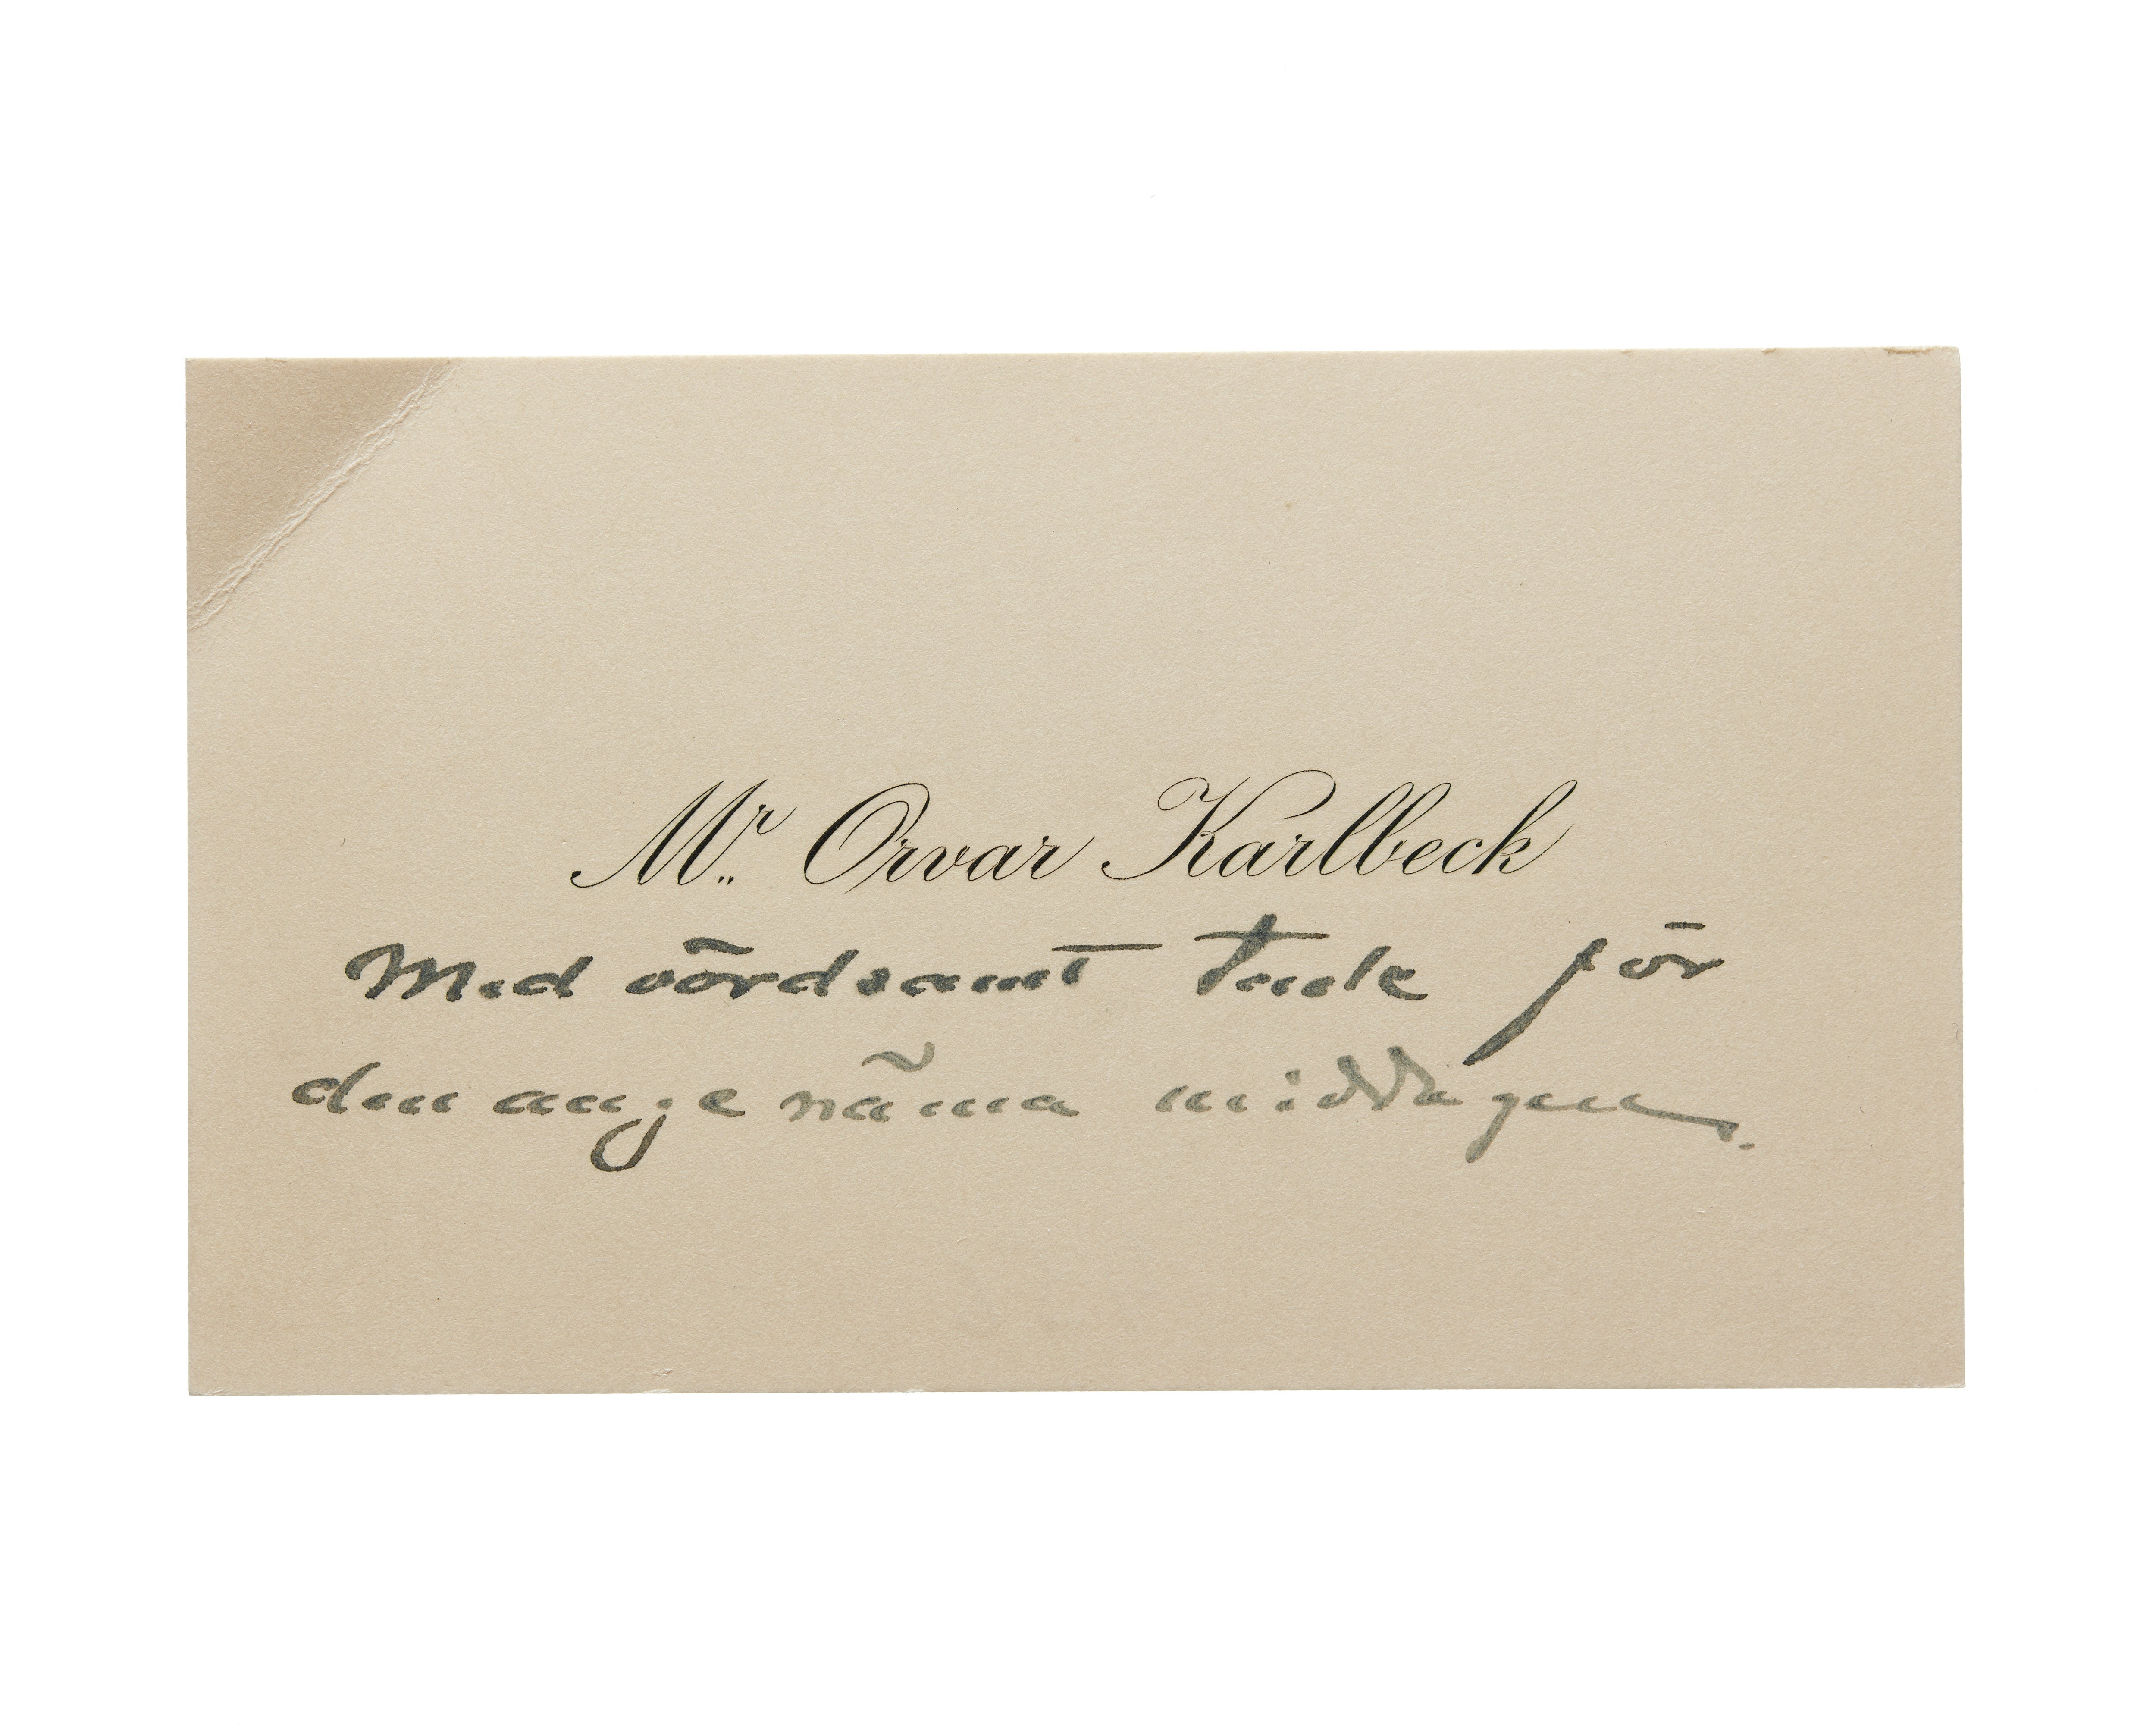 Mr. Orvar Karlbeck
Med vördsamt tack för
den angenäma middagen.